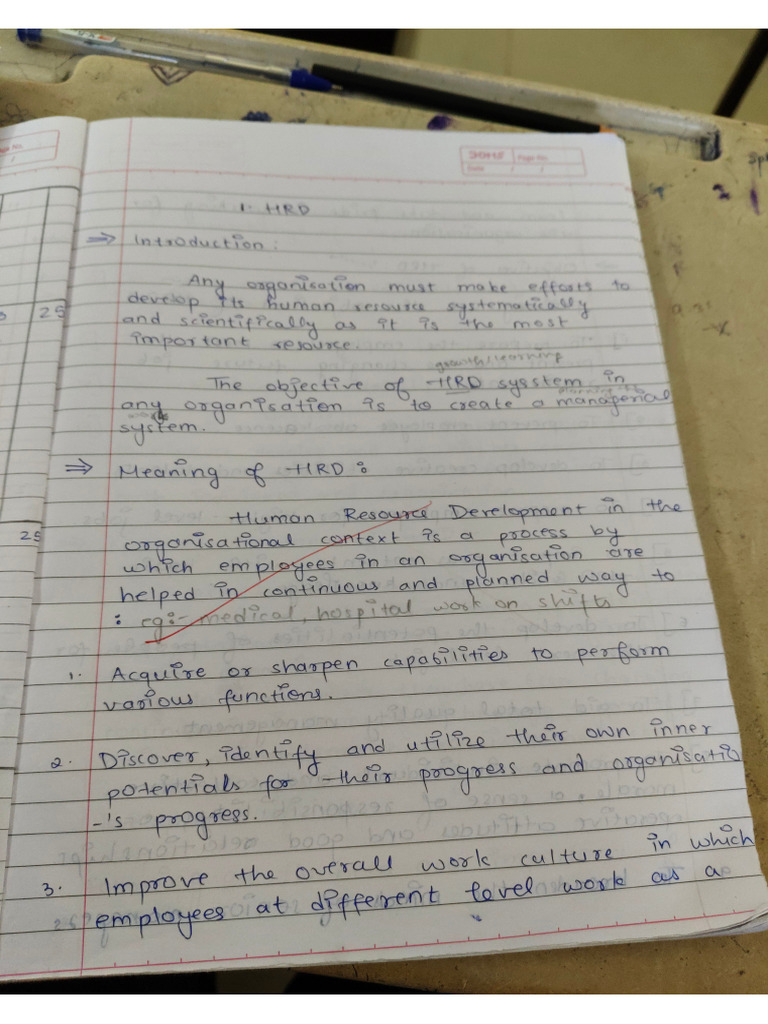 Page No.
Date / /
25
25
1. HRD
⇒ Introduction :
Any organisation must make efforts to
develop its human resource systematically
and scientifically as it is the most
important resource.
growth/learning
The objective of HRD sysstem in
any organisation is to create a managerial
system.
⇒ Meaning of HRD :
Human Resource Development in the
organisational context is a process by
which employees in an organisation are
helped in continuous and planned way to
: eg:- medical, hospital work on shifts
1. Acquire or sharpen capabilities to perform
various functions.
2. Discover, identify and utilize their own inner
potentials for their progress and organisatio
-'s progress.
3. Improve the overall work culture in which
employees at different level work as a